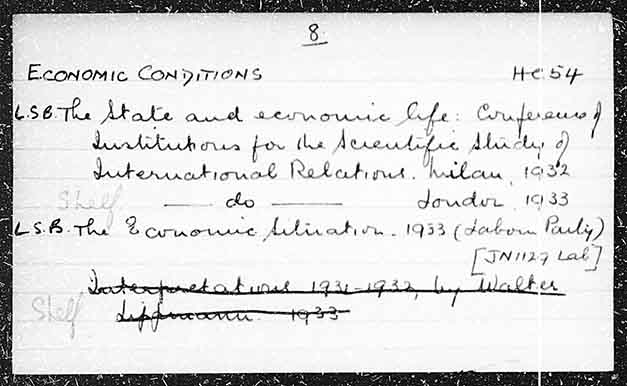 8.
ECONOMIC CONDITIONS HC.54
L.S.B. The State and economic life: Conference of
Institutions for the Scientific Study of
International Relations. Milan, 1932
Shelf — do — London, 1933
L.S.B. The Economic Situation. 1933 (Labour Party)
[JN1129 Lab]
Interpretations 1931-1932, by Walter
Shelf Lippmann. 1933